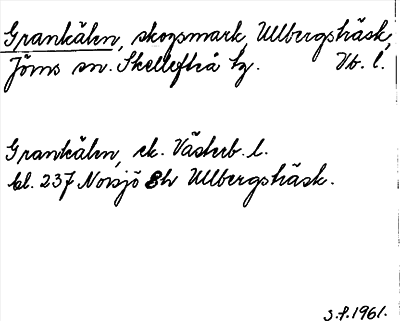 Grankälen, skogsmark, Ullbergsträsk,
Jörns sn. Skellefteå tg. Vb. l.
Grankälen, ek. Västerb. l.
bl. 237 Norsjö 8h Ullbergsträsk.
S.f. 1961.